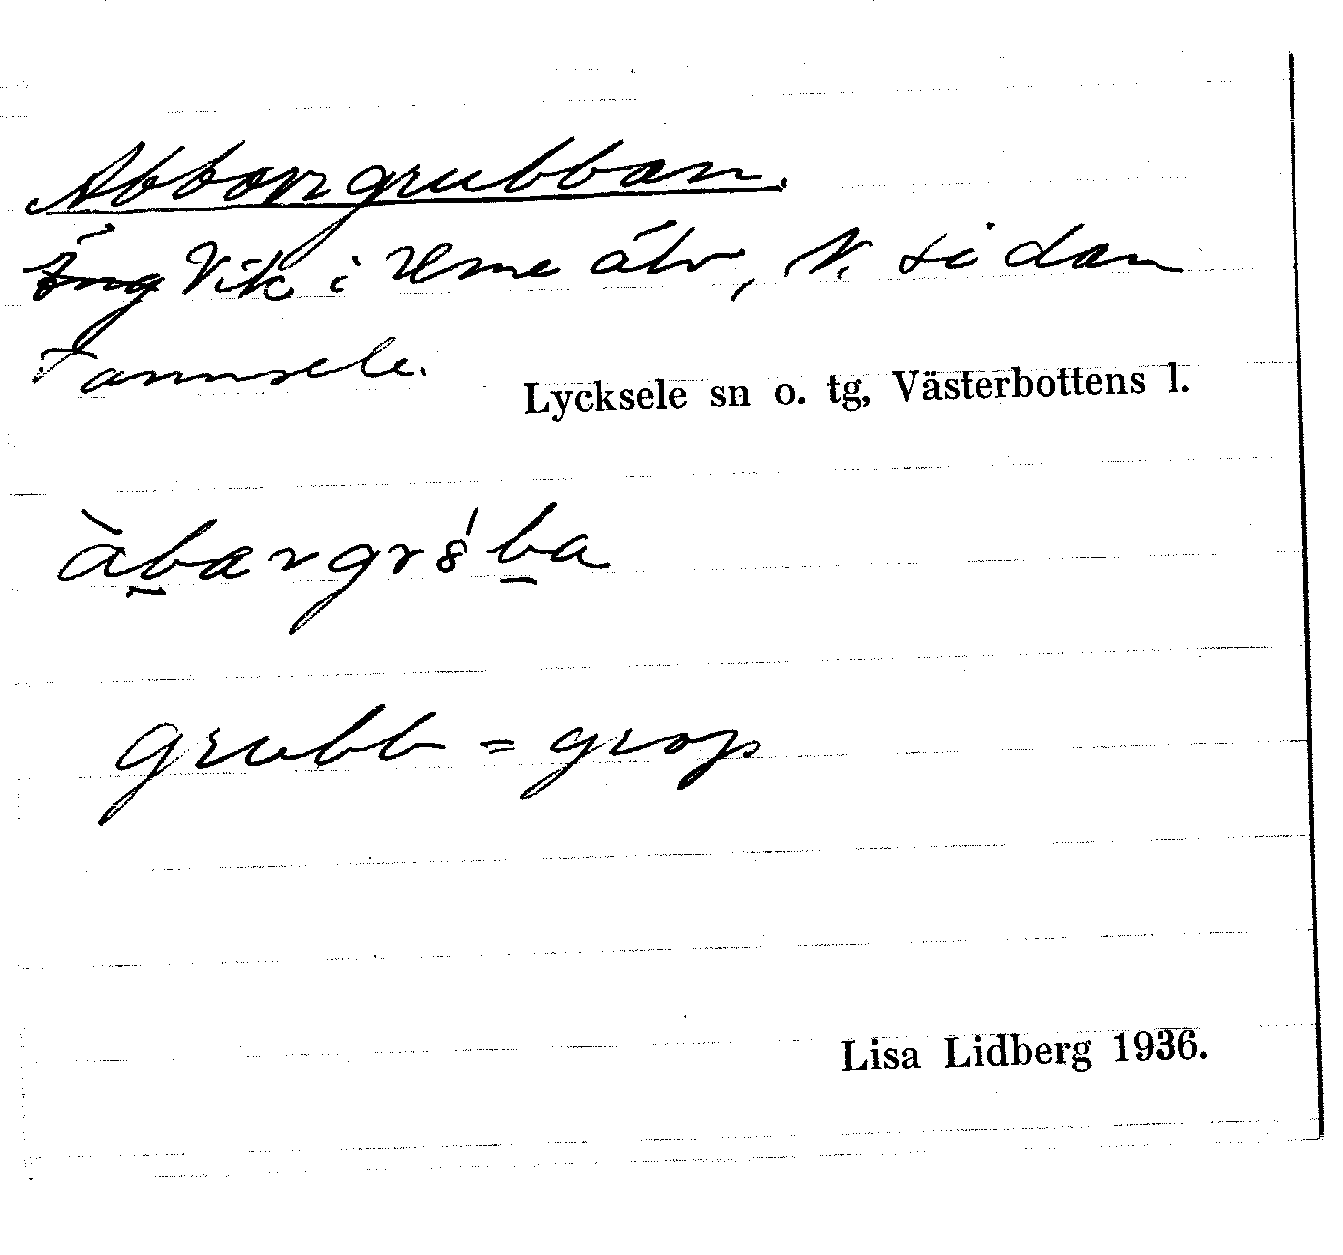 Abborrgrubban.
Äng Vik i Ume älv, N. sidan
Tannsele.
Lycksele sn o. tg, Västerbottens l.
àbargr8́ba
grubb = grop
Lisa Lidberg 1936.